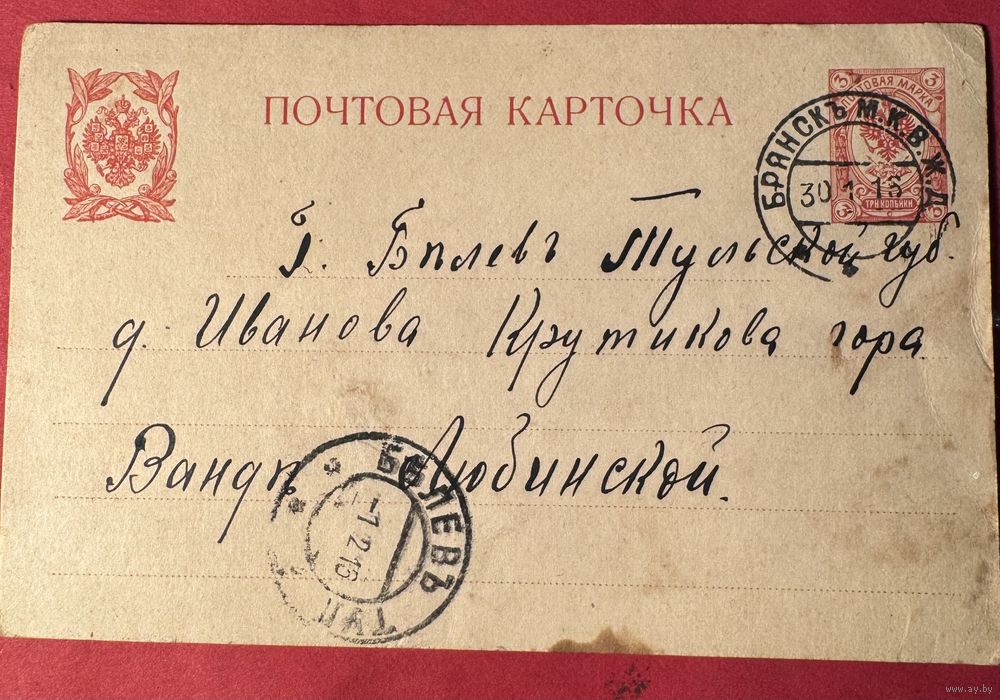 ПОЧТОВАЯ КАРТОЧКА
3 ПОЧТОВАЯ МАРКА 3
3 ТРИ КОПѢЙКИ 3
БРЯНСКЪ М.К.В.Ж.Д.
30 1 15
г. Бѣлевъ Тульской губ.
д. Иванова Крутикова гора
Вандѣ Любинской.
БѢЛЕВЪ ТУЛ
-1 2 15
www.ay.by